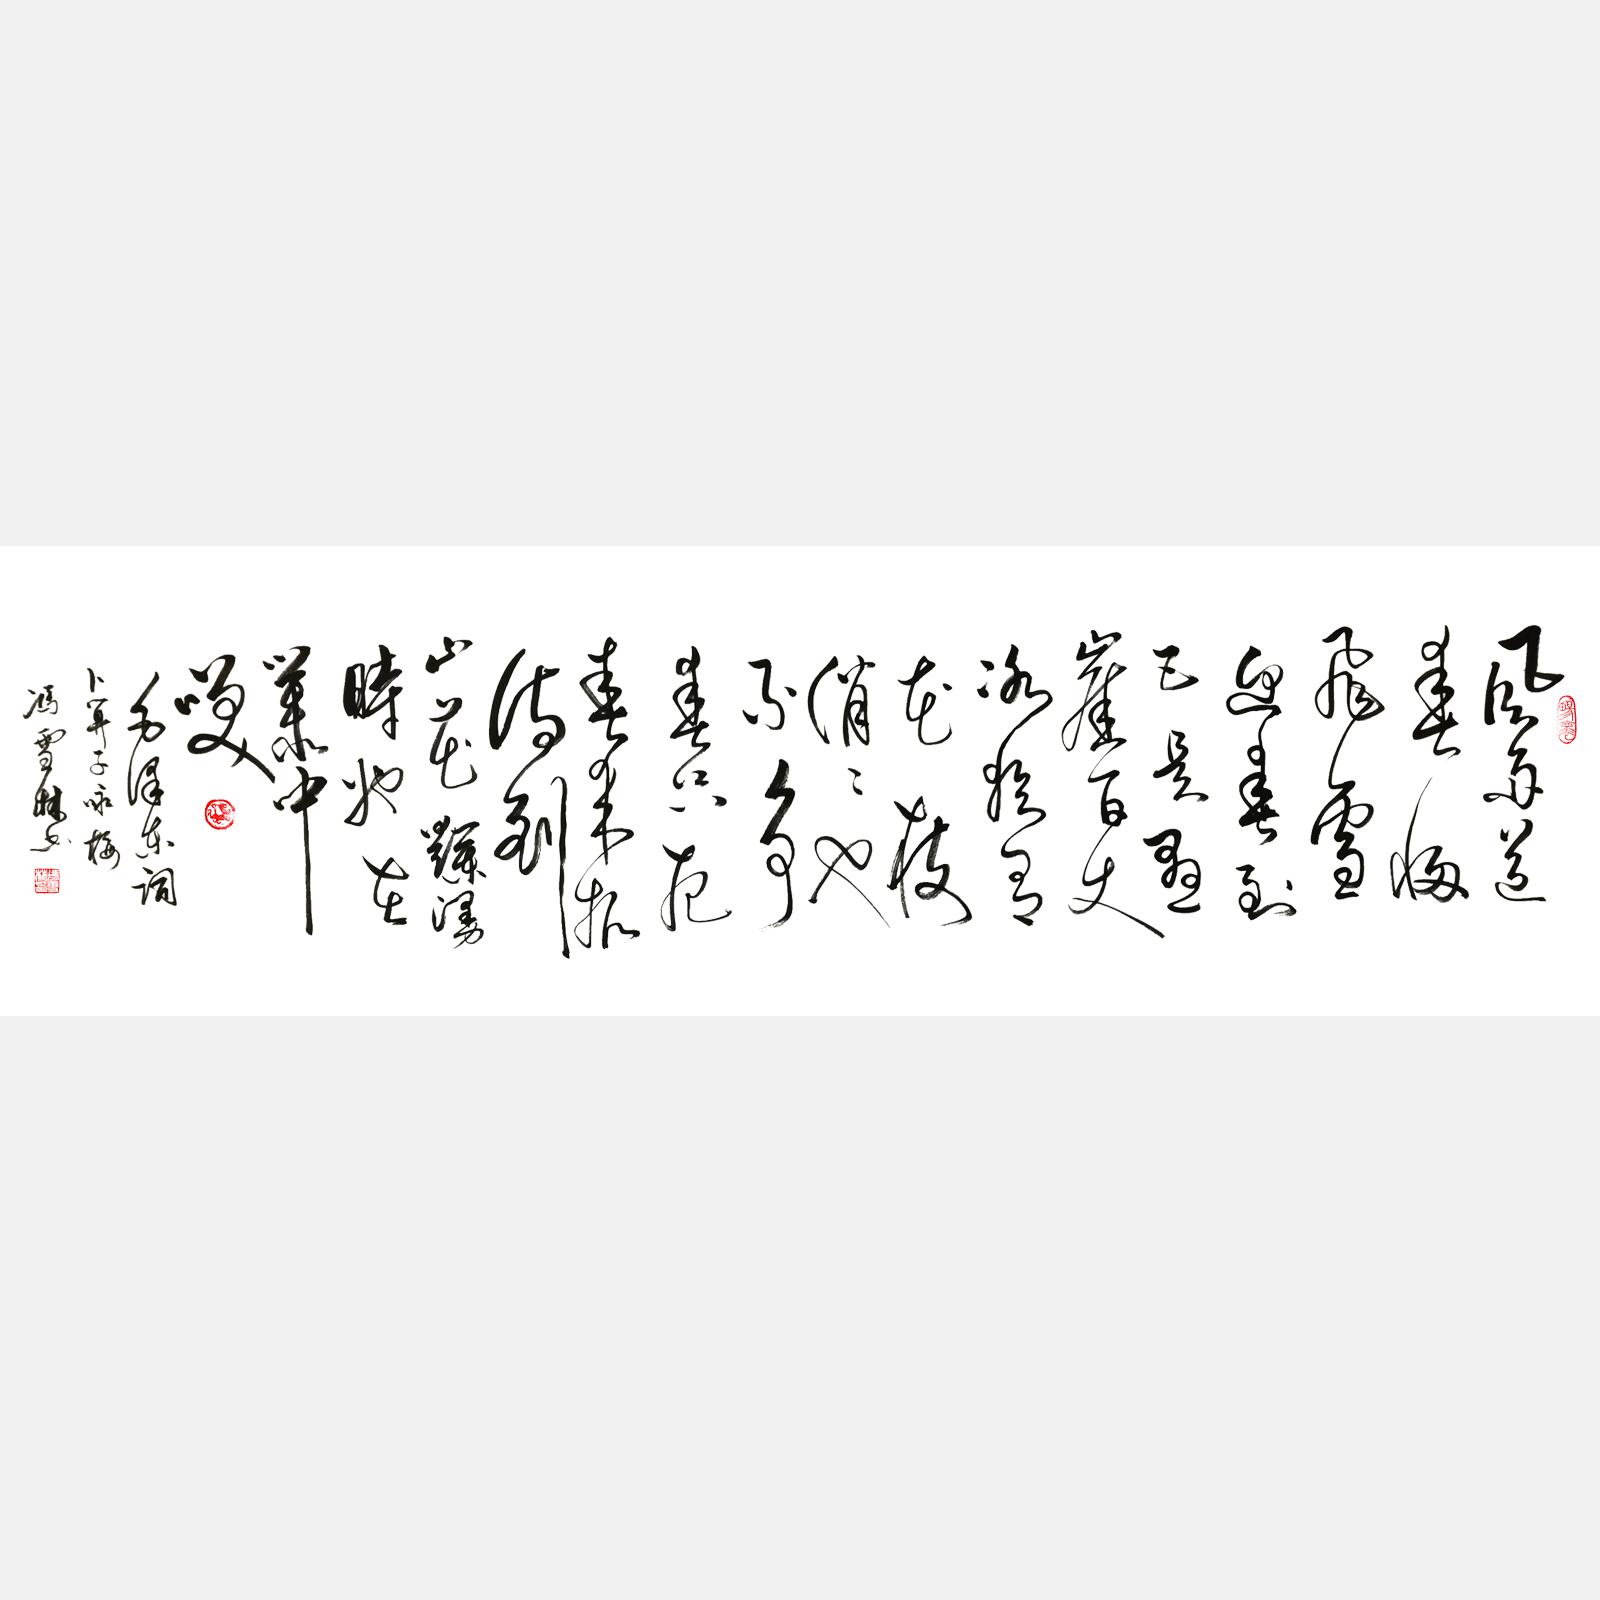 風雨送
春歸
飛雪
迎春到
已是懸
崖百丈
冰猶有
花枝
俏々也
不爭
春只把
春來報
待到
山花爛漫
時她在
叢中
咲
毛澤東詞
卜算子咏梅
馮雪林书